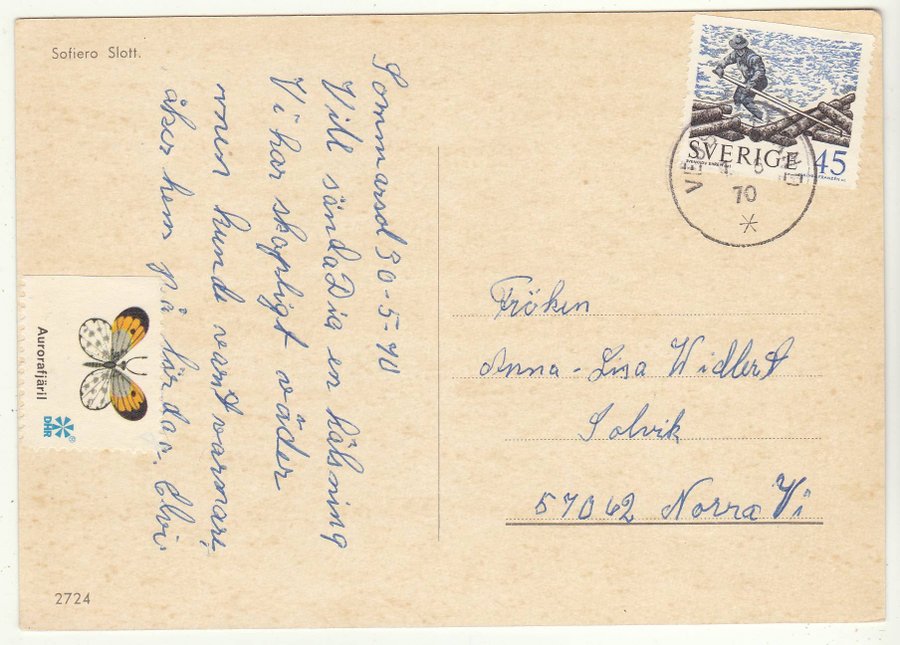 Sofiero Slott.
Sommarsol 30-5-70
Vill sända Dig en hälsning
Vi har skapligt väder
men kunde varit varmare
åker hem på lördag. Elvi
Aurorafjäril
DHR
2724
SVERIGE 45
70
Fröken
Anna-Lisa Widlert
Solvik
57062 Norra Vi